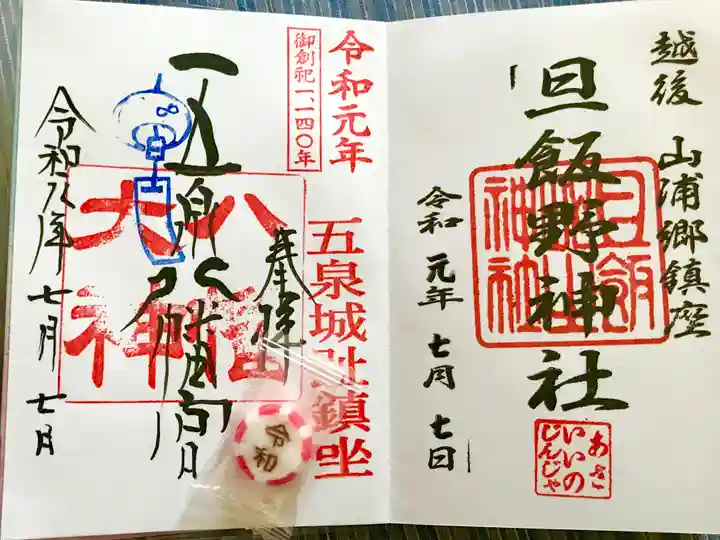 越後 山浦郷鎮座
旦飯野神社
令和 元年 七月 七日
旦飯
野山
神社
あさ
いいの
じんじゃ
令和元年
御創祀一、一四〇年
五泉城趾鎮坐
奉拝
五泉八幡宮
八幡
大神
令和元年 七月 七日
令和